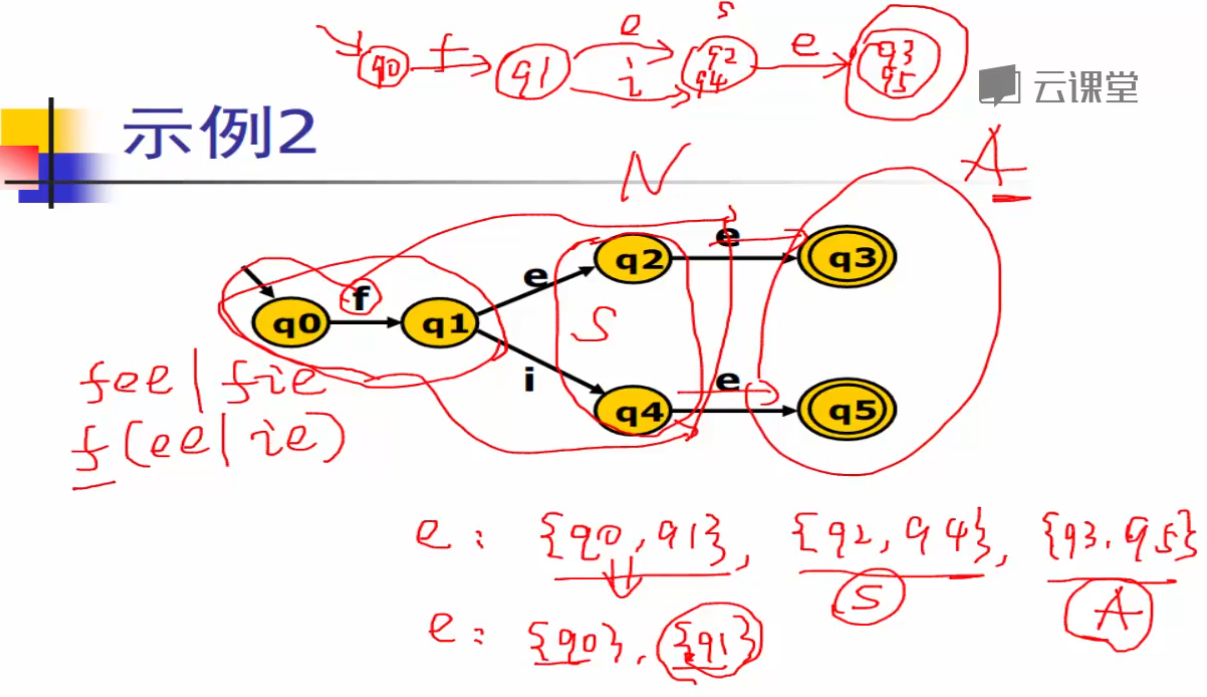 e s
q0 f q1 i q2 q4 e q3 q5
云课堂
示例2
N A
e e
q2 q3
f e
q0 q1 S
i e
q4 q5
fee|fie
f(ee|ie)
e: {q0, q1}, {q2, q4}, {q3, q5}
S A
e: {q0}, {q1}